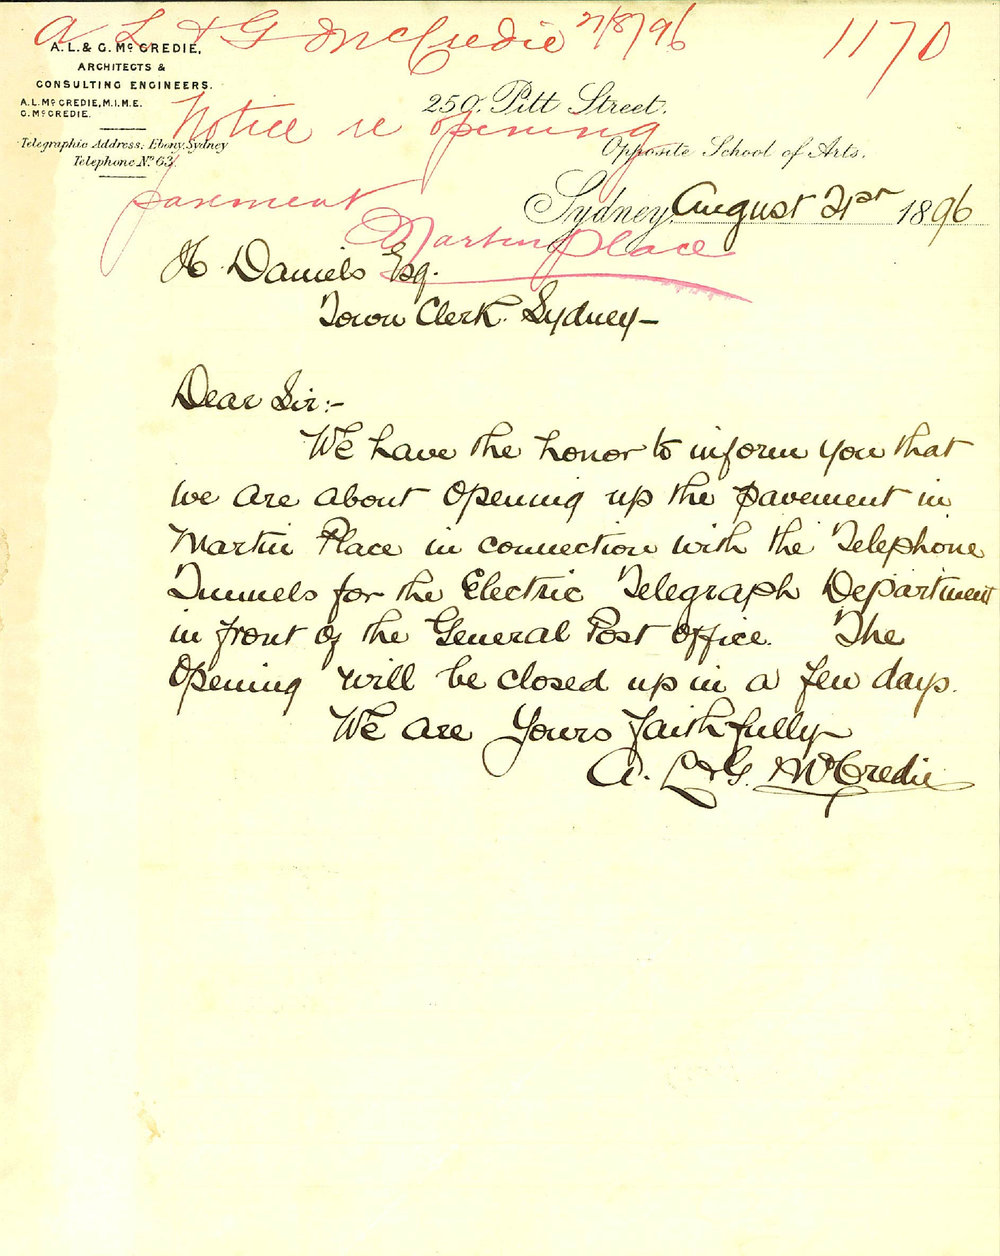 A L & G McCredie 21/8/96 1170
A. L. & G. McCREDIE,
ARCHITECTS &
CONSULTING ENGINEERS.
A. L. McCREDIE, M.I.M.E.
G. McCREDIE.
Telegraphic Address: Ebony, Sydney
Telephone No. 63.
250, Pitt Street.
Opposite School of Arts.
Notice re opening
pavement
Martin Place
Sydney, August 21st 1896
H Daniels Esq.
Town Clerk. Sydney—
Dear Sir:—
We have the honor to inform you that
we are about opening up the pavement in
Martin Place in connection with the Telephone
Tunnels for the Electric Telegraph Department
in front of the General Post Office. The
Opening will be closed up in a few days.
We are Yours faithfully
A. L & G. McCredie